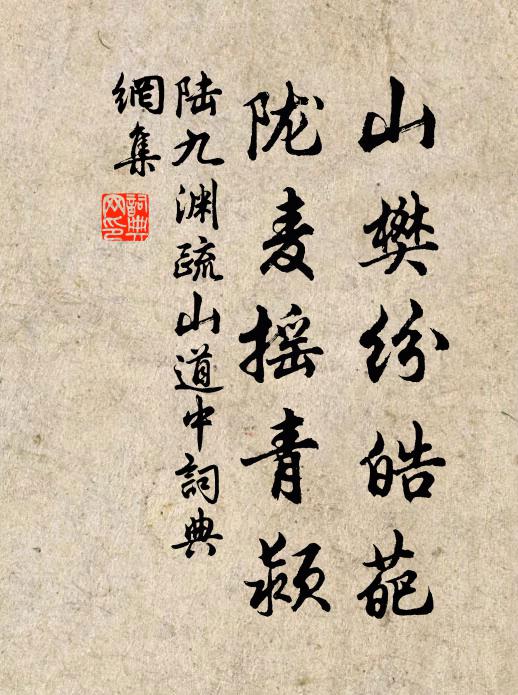 山樊纷皓葩
陇麦摇青颖
陆九渊疏山道中词典
網集
詞典
网印